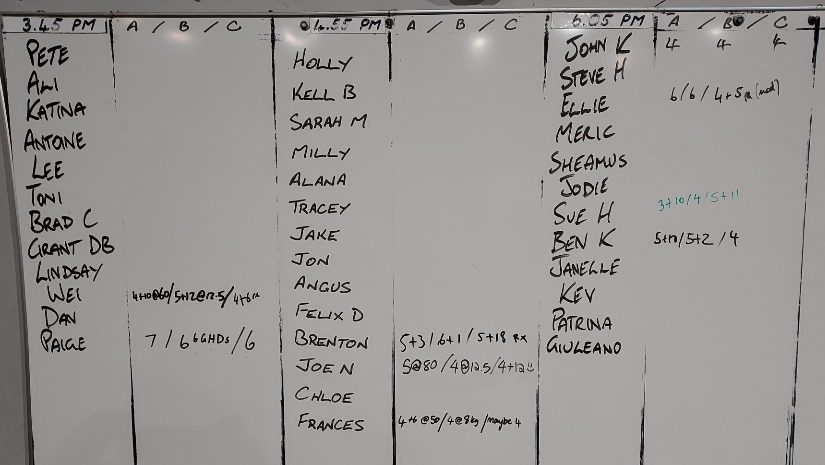 3.45 PM A / B / C
PETE
ALI
KATINA
ANTOINE
LEE
TONI
BRAD C
GRANT DB
LINDSAY
WEI 4+10@60/5+12@12.5/4+6
DAN
PAIGE 7 / 6 6GHDs / 6
4.55 PM A / B / C
HOLLY
KELL B
SARAH M
MILLY
ALANA
TRACEY
JAKE
JON
ANGUS
FELIX D
BRENTON 5+3 / 6+1 / 5+18 RX
JOE N 5@80 / 4@12.5 / 4+12
CHLOE
FRANCES 4+6 @50 / 4@8kg / maybe 4
6.05 PM A / B / C
JOHN K 4 4 4
STEVE H
ELLIE 6 / 6 / 4+5
MERIC
SHEAMUS
JODIE
SUE H 3+10 / 4 / 5+11
BEN K 5+10 / 5+2 / 4
JANELLE
KEV
PATRINA
GIULEANO